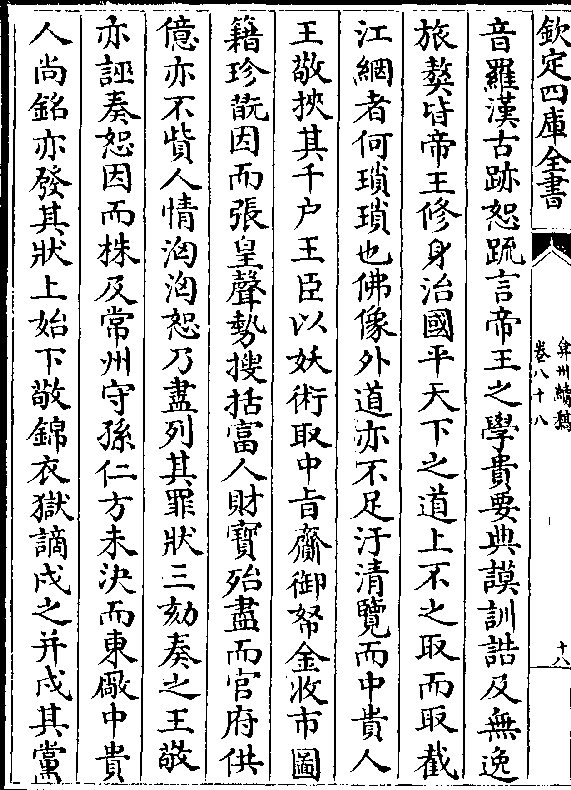 欽定四庫全書
弇州續稿
卷八十八
十八
音羅漢古跡恕䟽言帝王之學貴要典謨訓誥及無逸
旅獒皆帝王修身治國平天下之道上不之取而取截
江網者何瑣瑣也佛像外道亦不足汙清覽而中貴人
王敬挾其千户王臣以妖術取中旨齎御帑金收市圖
籍珍翫因而張皇聲勢搜括富人財寶殆盡而官府供
億亦不貲人情洶洶恕乃盡列其罪狀三劾奏之王敬
亦誣奏恕因而株及常州守孫仁方未決而東厰中貴
人尚銘亦發其狀上始下敬錦衣獄謫戍之并戍其黨